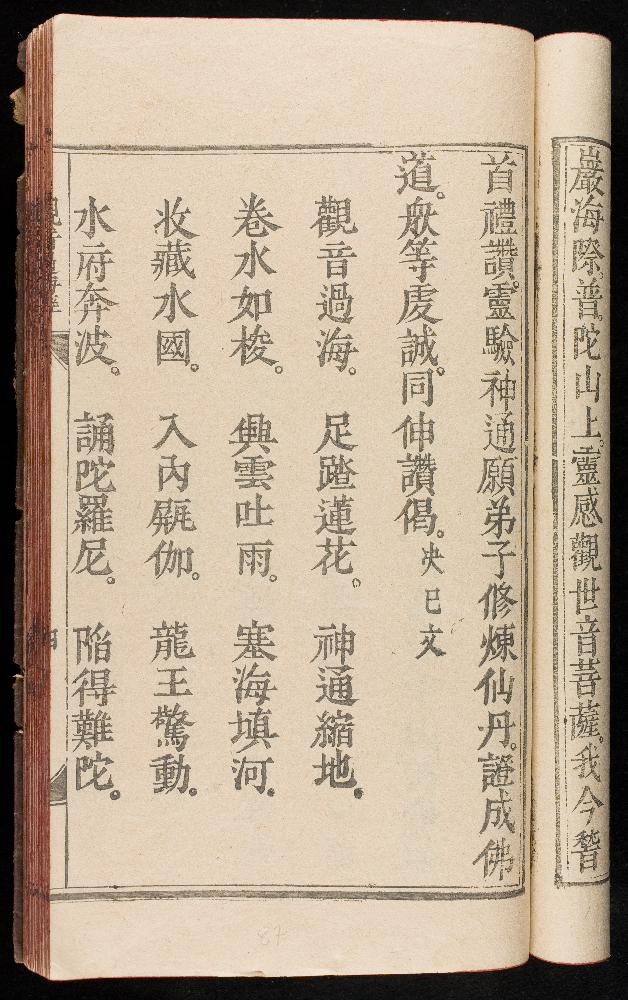 巖海際。普陀山上。靈感觀世音菩薩。我今㬱
首禮讚。靈驗神通願弟子修煉仙丹。證成佛
道。衆等虔誠。同伸讚偈。
觀音過海。 足踏蓮花。 神通縮地。
卷水如梭。 興雲吐雨。 塞海填河。
收藏水國。 入內瓶伽。 龍王驚動。
水府奔波。 誦陀羅尼。 陷得難陀。
87